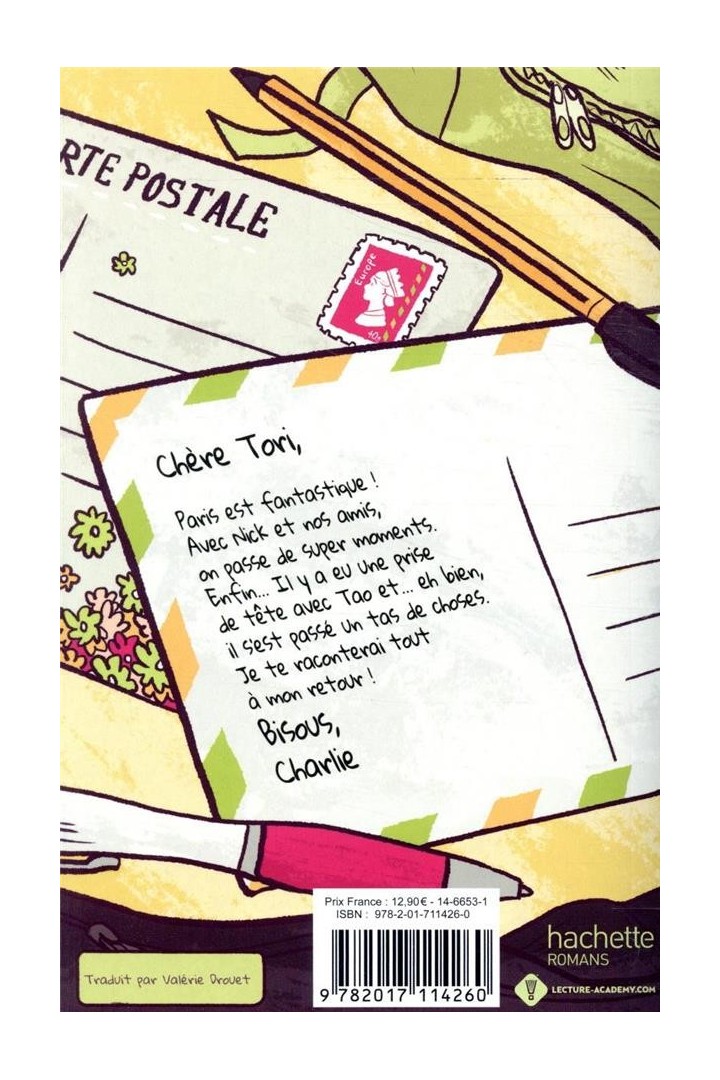 RTE POSTALE
Europe
Chère Tori,
Paris est fantastique !
Avec Nick et nos amis,
on passe de super moments.
Enfin... Il y a eu une prise
de tête avec Tao et... eh bien,
il s'est passé un tas de choses.
Je te raconterai tout
à mon retour !
Bisous,
Charlie
Prix France : 12,90€ - 14-6653-1
ISBN : 978-2-01-711426-0
9 782017 114260
Traduit par Valérie Drouet
hachette
ROMANS
LECTURE-ACADEMY.COM